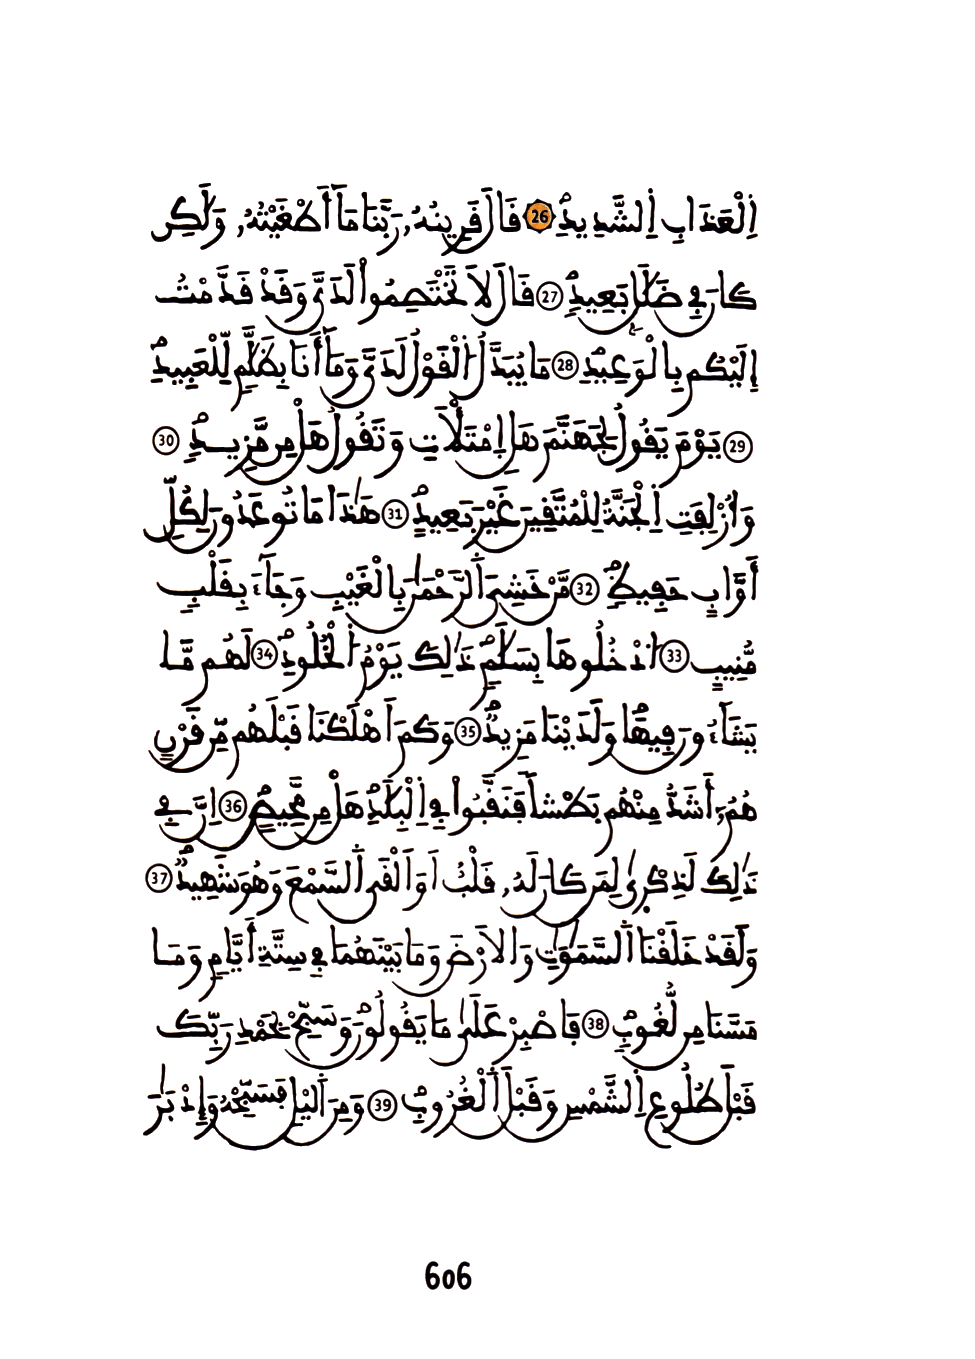 اِ۬لْعَذَابِ اِ۬لشَّدِيدِۖ 26 قَالَ قَرِينُهُۥ رَبَّنَا مَآ أَطْغَيْتُهُۥ وَلَٰكِن
كَانَ فِے ضَلَٰلِۢ بَعِيدٖۖ 27 قَالَ لَا تَخْتَصِمُواْ لَدَيَّ وَقَدْ قَدَّمْتُ
إِلَيْكُم بِالْوَعِيدِۖ 28 مَا يُبَدَّلُ اُ۬لْقَوْلُ لَدَيَّ وَمَآ أَنَا بِظَلَّٰمٖ لِّلْعَبِيدِۖ
29 يَوْمَ يَقُولُ لِجَهَنَّمَ هَلِ اِ۪مْتَلَأْتِ وَتَقُولُ هَلْ مِن مَّزِيدٖۖ 30
وَأُزْلِفَتِ اِ۬لْجَنَّةُ لِلْمُتَّقِينَ غَيْرَ بَعِيدٍۖ 31 هَٰذَا مَا تُوعَدُونَ لِكُلِّ
أَوَّابٍ حَفِيظٖۖ 32 مَّنْ خَشِيَ اَ۬لرَّحْمَٰنَ بِالْغَيْبِ وَجَآءَ بِقَلْبٖ
مُّنِيبٍ 33 اُ۟دْخُلُوهَا بِسَلَٰمٖۖ ذَٰلِكَ يَوْمُ اُ۬لْخُلُودِۖ 34 لَهُم مَّا
يَشَآءُونَ فِيهَاۖ وَلَدَيْنَا مَزِيدٞۖ 35 وَكَمَ اَهْلَكْنَا قَبْلَهُم مِّن قَرْنٍ
هُمُۥٓ أَشَدُّ مِنْهُم بَطْشاٗ فَنَقَّبُواْ فِے اِ۬لْبِلَٰدِۖ هَلْ مِن مَّحِيصٍۖ 36 اِنَّ فِے
ذَٰلِكَ لَذِكْر۪يٰ لِمَن كَانَ لَهُۥ قَلْبٌ اَوَ اَلْقَي اَ۬لسَّمْعَ وَهُوَ شَهِيدٞۖ 37
وَلَقَدْ خَلَقْنَا اَ۬لسَّمَٰوَٰتِ وَالَارْضَ وَمَا بَيْنَهُمَا فِے سِتَّةِ أَيَّامٖ وَمَا
مَسَّنَا مِن لُّغُوبٖۖ 38 فَاصْبِرْ عَلَيٰ مَا يَقُولُونَۖ وَسَبِّحْ بِحَمْدِ رَبِّكَ
قَبْلَ طُلُوعِ اِ۬لشَّمْسِ وَقَبْلَ اَ۬لْغُرُوبِۖ 39 وَمِنَ اَ۬ليْلِ فَسَبِّحْهُ وَإِدْبَٰرَ
606